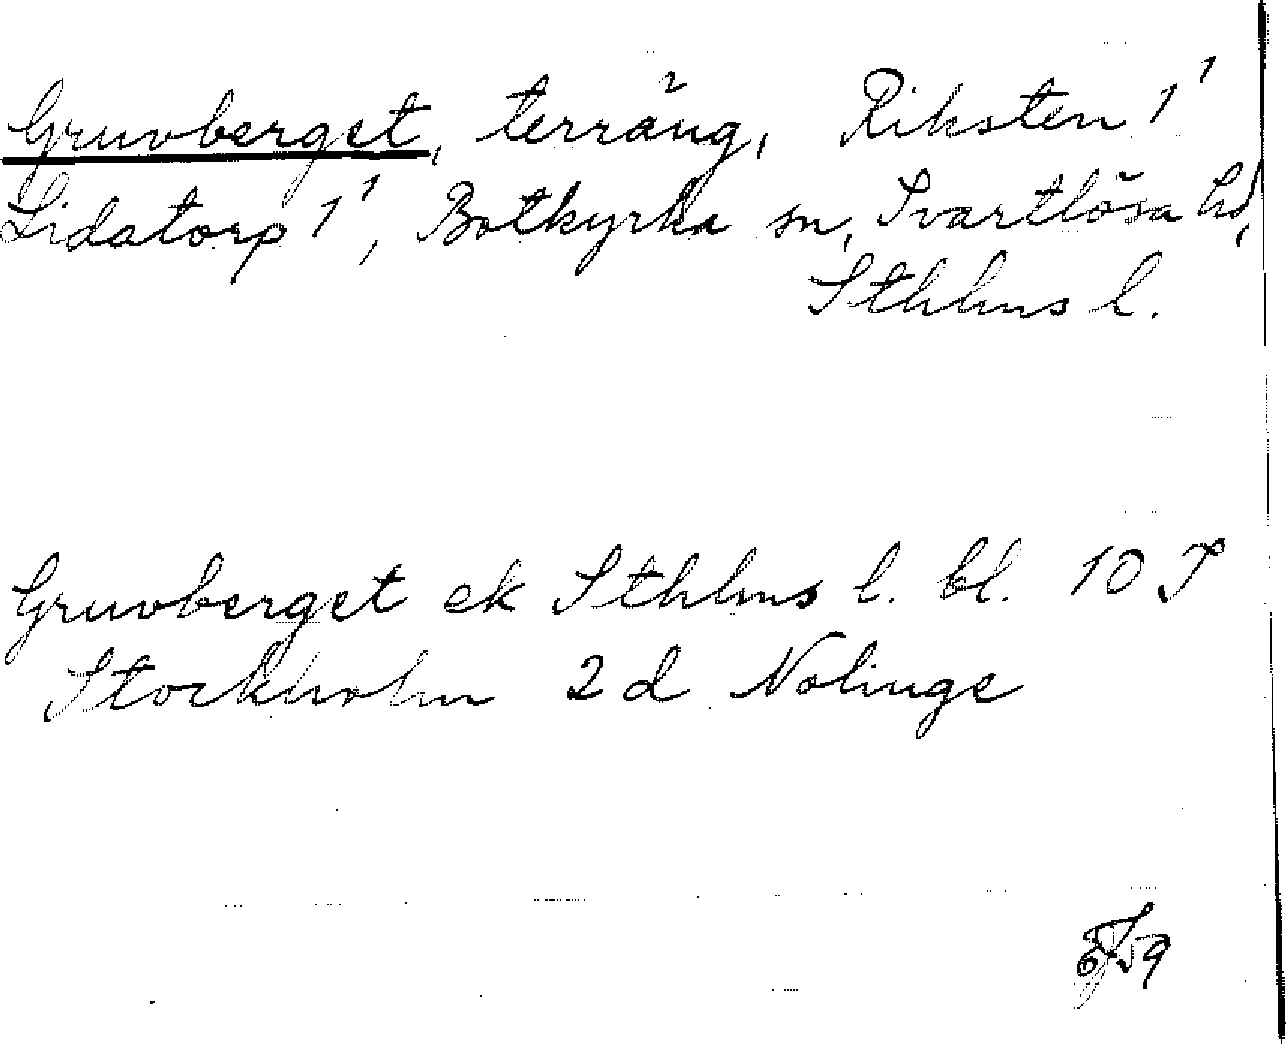 Gruvberget, terräng, Riksten 1¹
Lidatorp 1¹, Botkyrka sn, Svartlösa hd,
Sthlms l.
Gruvberget ek Sthlms l. bl. 10 I
Stockholm 2 d Nolinge